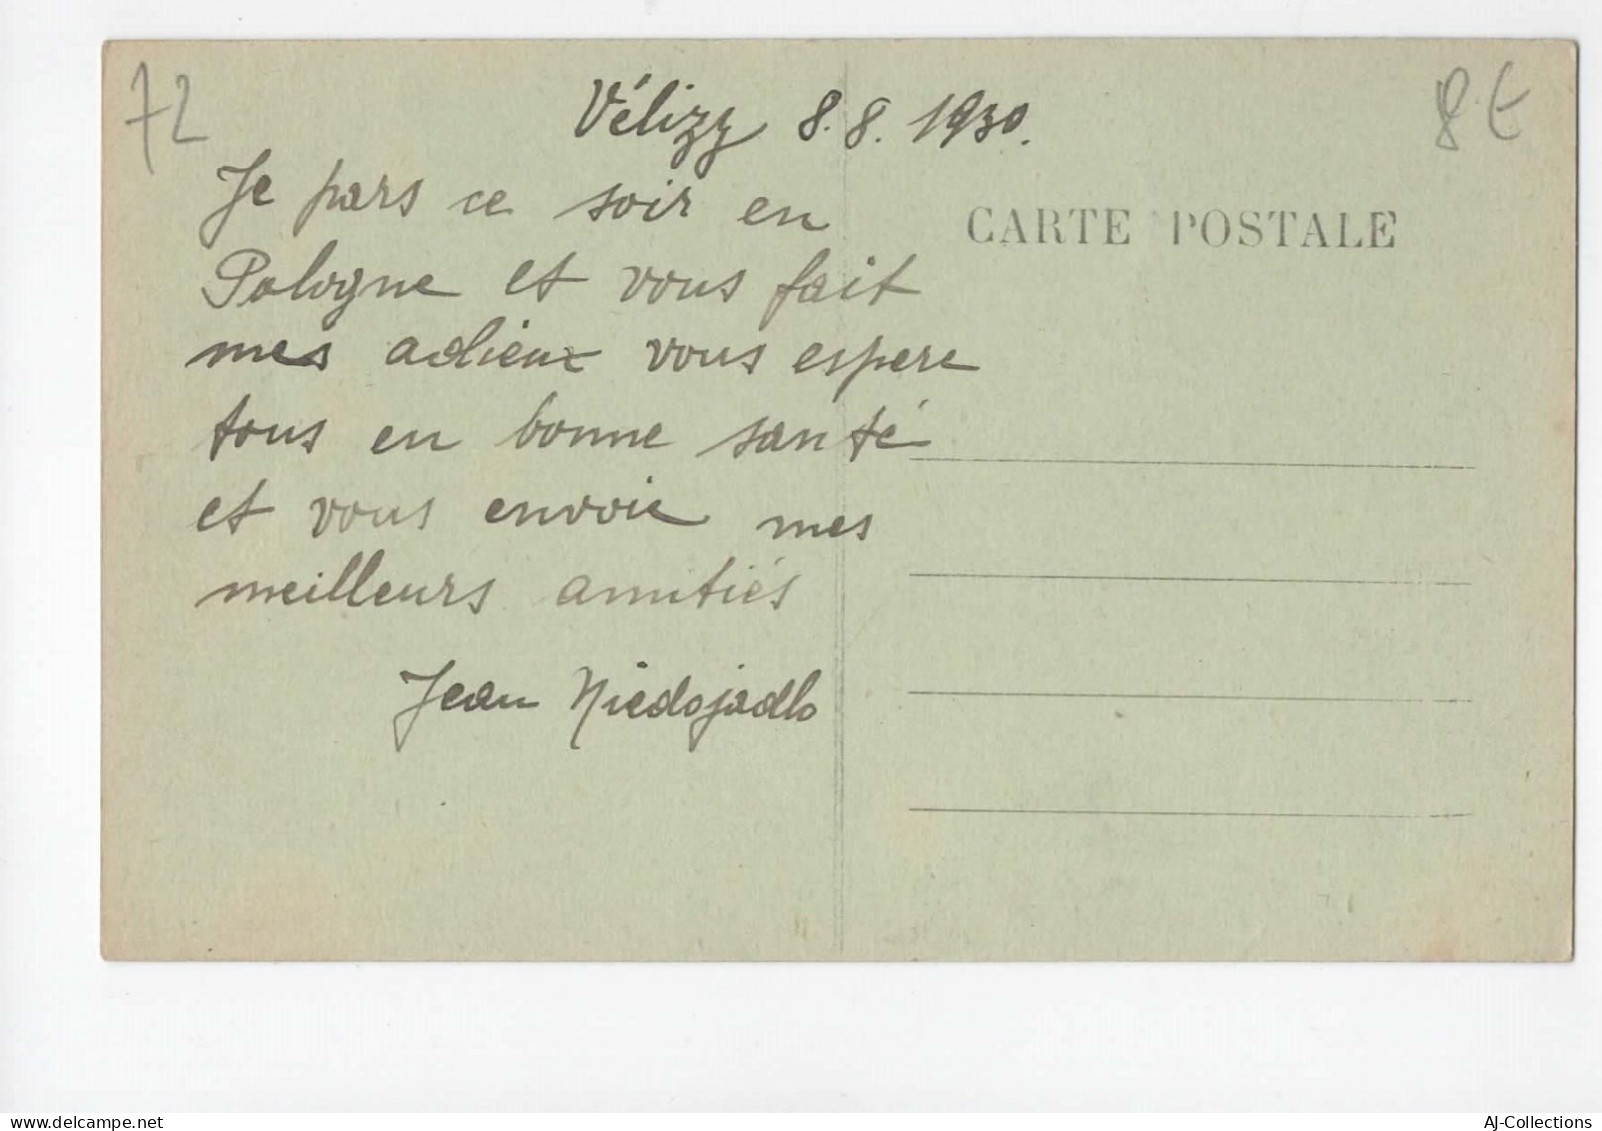 72
8€
Vélizy 8.8.1930.
Je pars ce soir en
Pologne et vous fait
mes adieux vous espere
tous en bonne santé
et vous envoie mes
meilleurs amitiés
Jean Niedojadlo
CARTE POSTALE
AJ-Collections